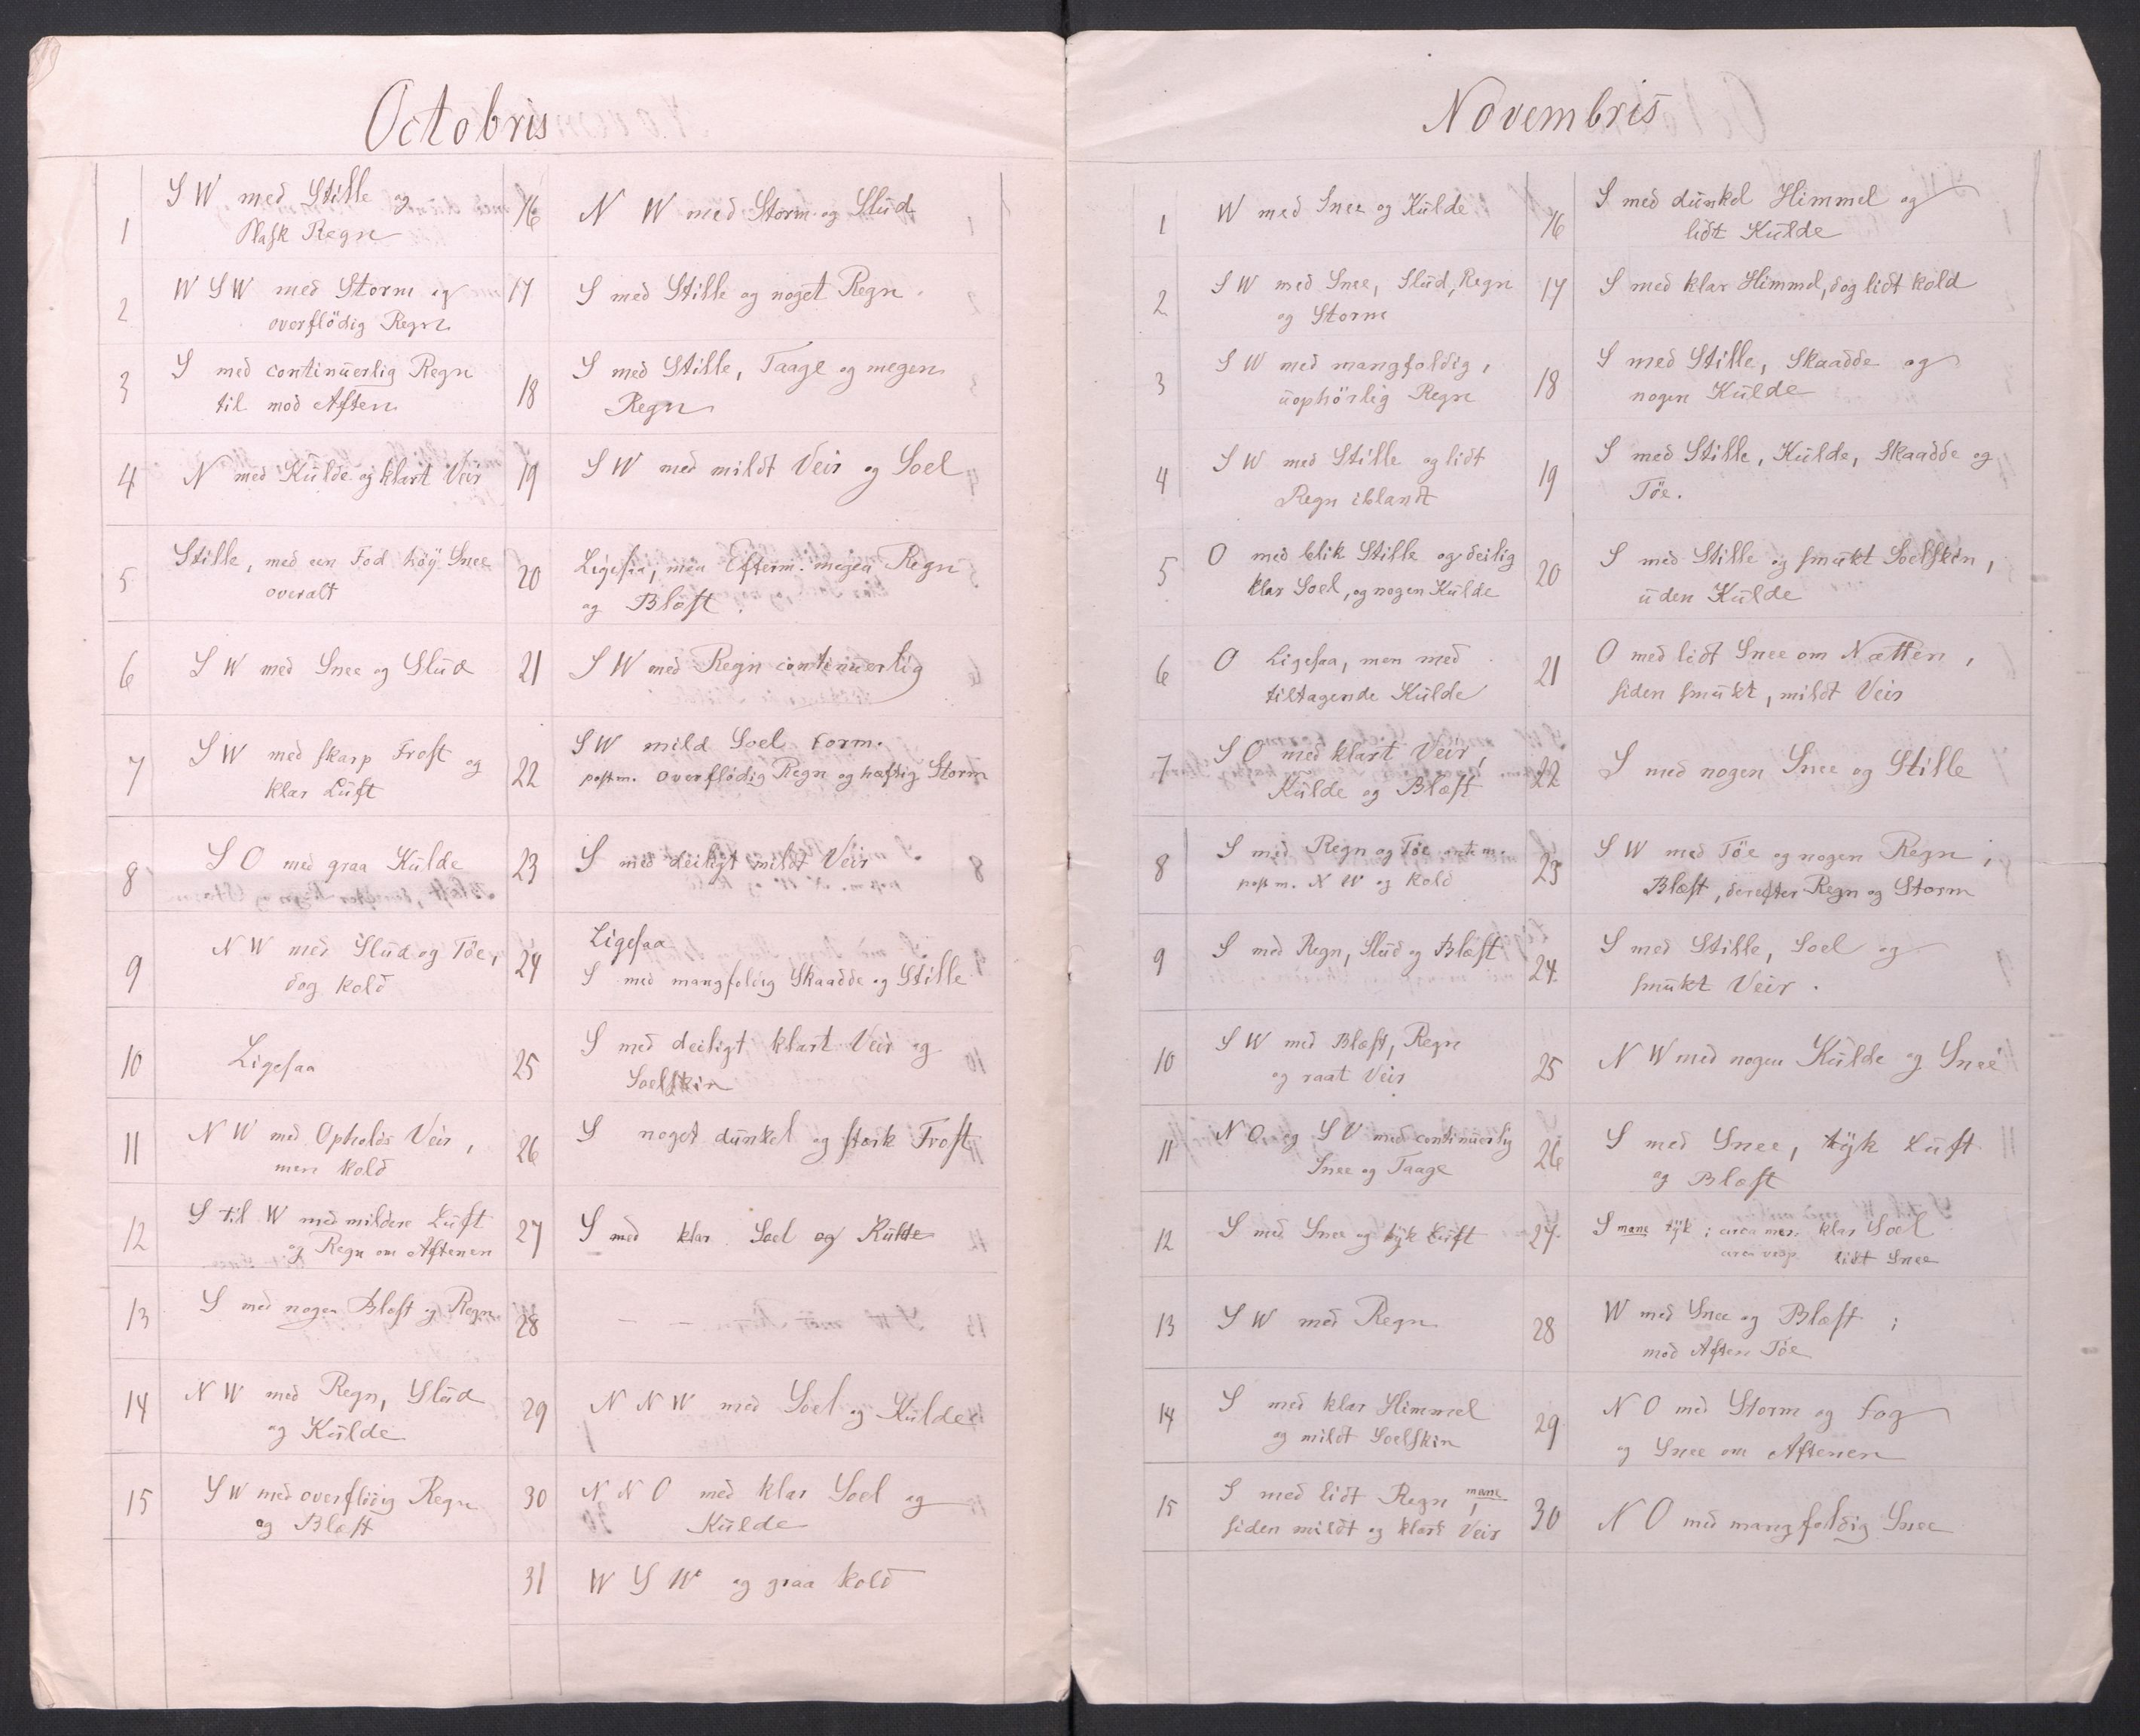 Octobris
1 S W med Stille og
Plask Regn
2 W S W med Storm og
overflödig Regn
3 S med continuerlig Regn
til mod Aften
4 N med Kulde og klart Veir
5 Stille, med een Fod höy Snee
overalt
6 S W med Snee og Slud
7 S W med skarp Frost og
klar Luft
8 S O med graa Kulde
9 N W med Slud og Töe,
dog kold
10 Ligesaa
11 N W med Opholds Veir,
men kold
12 S til W med mildere Luft
og Regn om Aftenen
13 S med nogen Blæst og Regn
14 N W med Regn, Slud
og Kulde
15 S W med overflödig Regn
og Blæst
16 N W med Storm og Slud
17 S med Stille og noget Regn.
18 S med Stille, Taage og megen
Regn
19 S W med mildt Veir og Soel
20 Ligesaa, men Efterm. megen Regn
og Blæst
21 S W med Regn continuerlig
22 S W mild Soel Form.
postm. overflödig Regn og hæftig Storm
23 S med deiligt mildt Veir
24 Ligesaa
S med mangfoldig Skaadde og Stille
25 S med deiligt klart Veir og
Soelskin
26 S noget dunkel og stærk Frost
27 S med klar Soel og Kulde
28 — —
29 N N W med Soel og Kulde
30 N N O med klar Soel og
Kulde
31 W S W og graa kold
Novembris
1 W med Snee og Kulde
2 S W med Snee, Slud, Regn
og Storm
3 S W med mangfoldig,
uophörlig Regn
4 S W med Stille og lidt
Regn iblandt
5 O med blik Stille og deilig
klar Soel, og nogen Kulde
6 O Ligesaa, men med
tiltagende Kulde
7 S O med klart Veir,
Kulde og Blæst
8 S med Regn og Töe antem.
postm. N W og kold
9 S med Regn, Slud og Blæst
10 S W med Blæst, Regn
og raat Veir
11 N O og S V med continuerlig
Snee og Taage
12 S med Snee og tyk Luft
13 S W med Regn
14 S med klar Himmel
og mildt Soelskin
15 S med lidt Regn mane,
siden mildt og klart Veir
16 S med dunkel Himmel og
lidt Kulde
17 S med klar Himmel, dog lidt kold
18 S med Stille, Skaadde og
nogen Kulde
19 S med Stille, Kulde, Skaadde og
Töe.
20 S med Stille og smukt Soelskin,
uden Kulde
21 O med lidt Snee om Natten,
siden smukt, mildt Veir
22 S med nogen Snee og Stille
23 S W med Töe og nogen Regn,
Blæst, derefter Regn og Storm
24. S med Stille, Soel og
smukt Veir.
25 N W med nogen Kulde og Snee
26 S med Snee, tyk Luft
og Blæst
27. S mane tyk; circa mer. klar Soel
circa vesp. lidt Snee
28 W med Snee og Blæst;
mod Aften Töe
29 N O med Storm og Fog
og Snee om Aftenen
30 N O med mangfoldig Snee